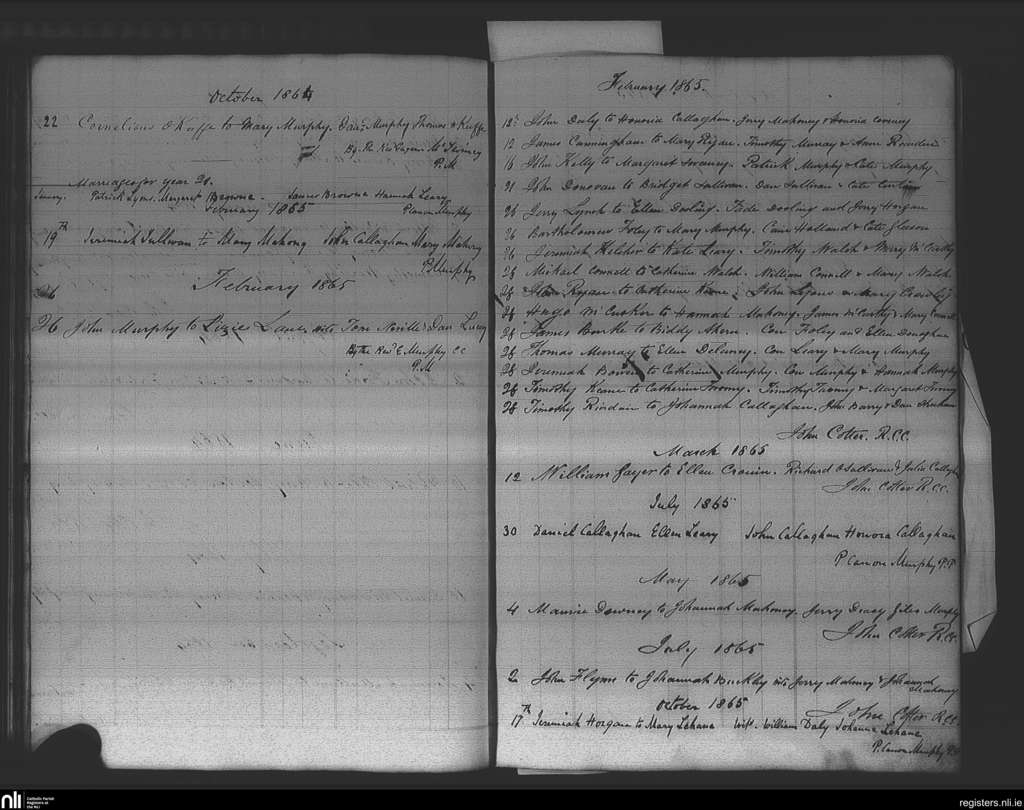 October 1864
22 Cornelious O Keeffe to Mary Murphy. Danl Murphy Thomas O Keeffe
By The Revd Eugene McSwiney
P.M
Marriages for year 
January. Patrick Lyons. Margaret Browne. James Browne Hannah Leary
February 1865 P Canon Murphy
19th Jeremiah Sullivan to Mary Mahony John Callaghan Mary Mahony
P. Murphy
February 1865
26 John Murphy to Lizie Lane wits Tom Neville & Dan Lucey
By the Revd E. Murphy CC
P.M
February 1865.
12 John Daly to Honoria Callaghan. Jerry Mahoney & Honoria
12 James Cunningham to Mary Regan. Timothy Murray & Anne
16 John Kelly to Margaret Murphy & Cate Murphy.
21 John Donovan to Bridget Sullivan. Dan Sullivan & Cate
26 Jerry Lynch to Ellen Dooling. Jade Dooling and Jerry Horgan
26 Bartholomew Foley to Mary Murphy. Holland & Cate Gleeson
26 Jeremiah Keleher to Kate Leary. Timothy Walsh & Mary McCarthy
28 Michael Connell to Catherine Walsh. William Connell & Mary Walsh
28 John Ryan to Catherine Keane. John Lyons & Mary Crowley
28 Hugo McCusker to Hannah Mahony. James McCarthy & Mary Connell
28 James Bourke to Biddy Ahern. Con Foley and Ellen Donoghue
28 Thomas Murray to Ellen Delaney. Con Leary & Mary Murphy
28 Jeremiah Bowen to Catherine Murphy. Con Murphy & Hannah Murphy
28 Timothy Keane to Catherine Twomey. Timothy Twomey & Margaret Twomey
28 Timothy Riordan to Johannah Callaghan. John Barry & Dan
John Cotter. R.C.C.
March 1865
12 William Sayer to Ellen Cronin. Richard O Sullivan & Julia Callaghan
John Cotter R.C.C.
July 1865
30 Daniel Callaghan Ellen Leary John Callaghan Honora Callaghan
P. Canon Murphy P.P
May 1865
4 Maurice Downey to Johannah Mahoney. Jerry Dracy Giles Murphy
John Cotter R.C.C.
July 1865
2 John Flynn to Johannah Buckley wits Jerry Mahoney & Johannah
Mahoney
October 1865 John Cotter R.C.C.
17th Jeremiah Horgan to Mary Lehane Wits. William Daly Johanna Lehane
P. Canon Murphy P.P
nli Catholic Parish Registers at the NLI
registers.nli.ie